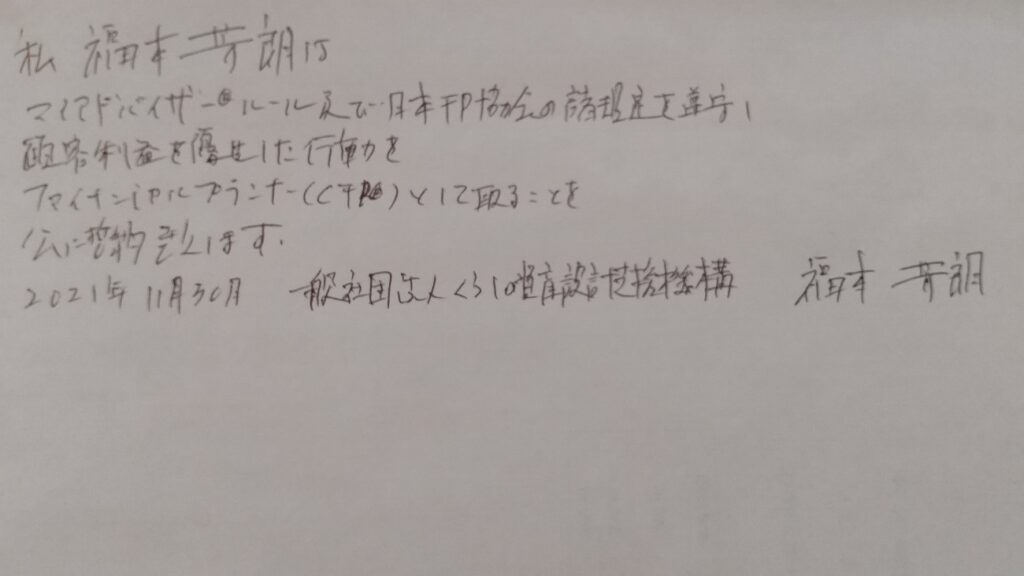 私 福本 芳朗は
マイアドバイザー®ルール及び日本FP協会の諸規定を遵守し
顧客利益を優先した行動を
ファイナンシャルプランナー(CFP®)として取ることを
公に誓約致します.
2021年 11月30日 一般社団法人くらしの資産設計支援機構 福本 芳朗